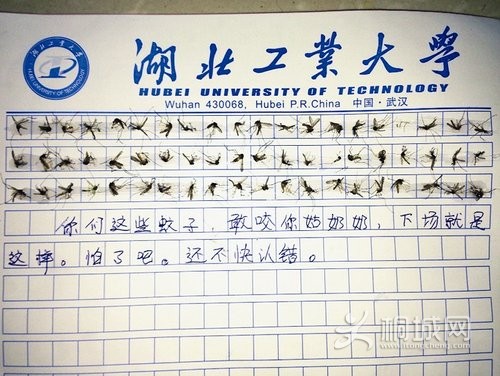 湖北工業大學
HUBEI UNIVERSITY OF TECHNOLOGY
HUBEI UNIVERSITY OF TECHNOLOGY
Wuhan 430068, Hubei P.R.China 中国·武汉
你们这些蚊子，敢咬你姑奶奶，下场就是
这样。怕了吧。还不快认错。
桐城网